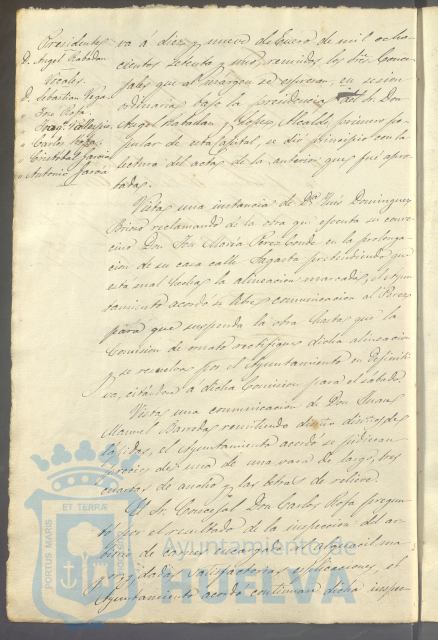 Presidentes
D. Angel Rabadan
Vocales
D. Sebastian Vega
" José Rofa
" Franco Vallespin
" Carlos Rofa
" Cristobal Garcia
" Antonio Garcia
va á diez y nueve de Enero de mil ocho
cientos setenta y uno, reunidos los Sres Conce
jales que al margen se espresan, en sesion
ordinaria bajo la presidencia del Sr. Don
Angel Rabadan y Lopez Alcalde primero po
pular de esta Capital, se dió principio con la
lectura del acta de la anterior que fué apro
bada.
Vista una instancia de Dn Luis Dominguez
reclamando de la obra que ejecuta su conve
cino Don José Maria Perez Conde en la prolonga
cion de su casa calle Sagasta pretendiendo que
está mal hecha la alineacion marcada, el Ayun
tamiento acordó se libre comunicacion al Perez
para que suspenda la obra hasta que la
Comision de ornato rectifique dicha alineacion
y se resuelva por el Ayuntamiento en definiti
va, citandose á dicha Comision para el sabado.
Vista una comunicacion de Don Juan
Manuel Barredas remitiendo diseños de
lápidas, el Ayuntamiento acordó se pidieran
precios de una de una vara de largo, tres
cuartas de ancho y las letras de relieve.
El Sr. Concejal Don Carlos Rofa pregun
tó por el resultado de la inspeccion del ar
bitrio de carnes encargada al alguacil ma
yor y dadas satisfactorias esplicaciones, el
Ayuntamiento acordó continuara dicha inspec
PORTUS MARIS
ET TERRÆ
Ayuntamiento de
HUELVA